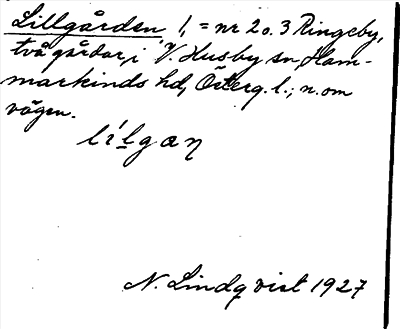 Lillgården l, = nr 2 o. 3 Ringeby,
två gårdar, i V. Husby sn, Ham-
markinds hd, Österg. l.; n. om
vägen.
lìlgaƞ
N. Lindqvist 1927